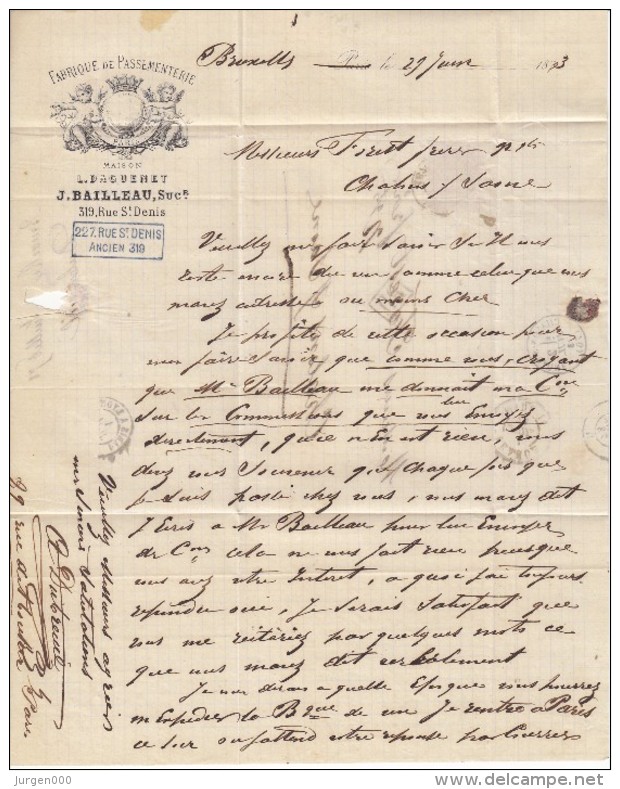 FABRIQUE DE PASSEMENTERIE
PARIS
MAISON
L. DAGUENET
J. BAILLEAU, Sucr.
319, Rue St. Denis
227. RUE ST. DENIS
ANCIEN 319
Bruxelles Paris le 29 Juin 1873
Messieurs frères
Chalons s/ Saone
Veuillez me faire savoir s'il vous
reste encore de comme celui que vous
m'avez adressé ou moins cher
Je profite de cette occasion pour
vous faire savoir que comme vous croyant
que Mr Bailleau me donnait ma Con
sur les Commissions que vous lui Envoyez
directement, qu'il n'en est rien, vous
devez vous souvenir que chaque fois que
je suis passé chez vous, vous m'avez dit
J'Ecris à Mr Bailleau pour lui Envoyer
de Con cela ne vous fait rien puisque
vous avez votre Interet, a quoi j'ai toujours
repondu oui, Je serais satisfait que
vous me reiteriez par quelques mots ce
que vous m'avez dit verbalement
Je vous dirais a quelle Epoque vous pourrez
m'Expedier la Bque de Je rentre a Paris
ce soir ou j'attend votre reponse par Courrier
Veuillez Messieurs agréer
mes sinceres Salutations
Dubreuil
99 rue de
Paris
Jurgen000
delcampe.net